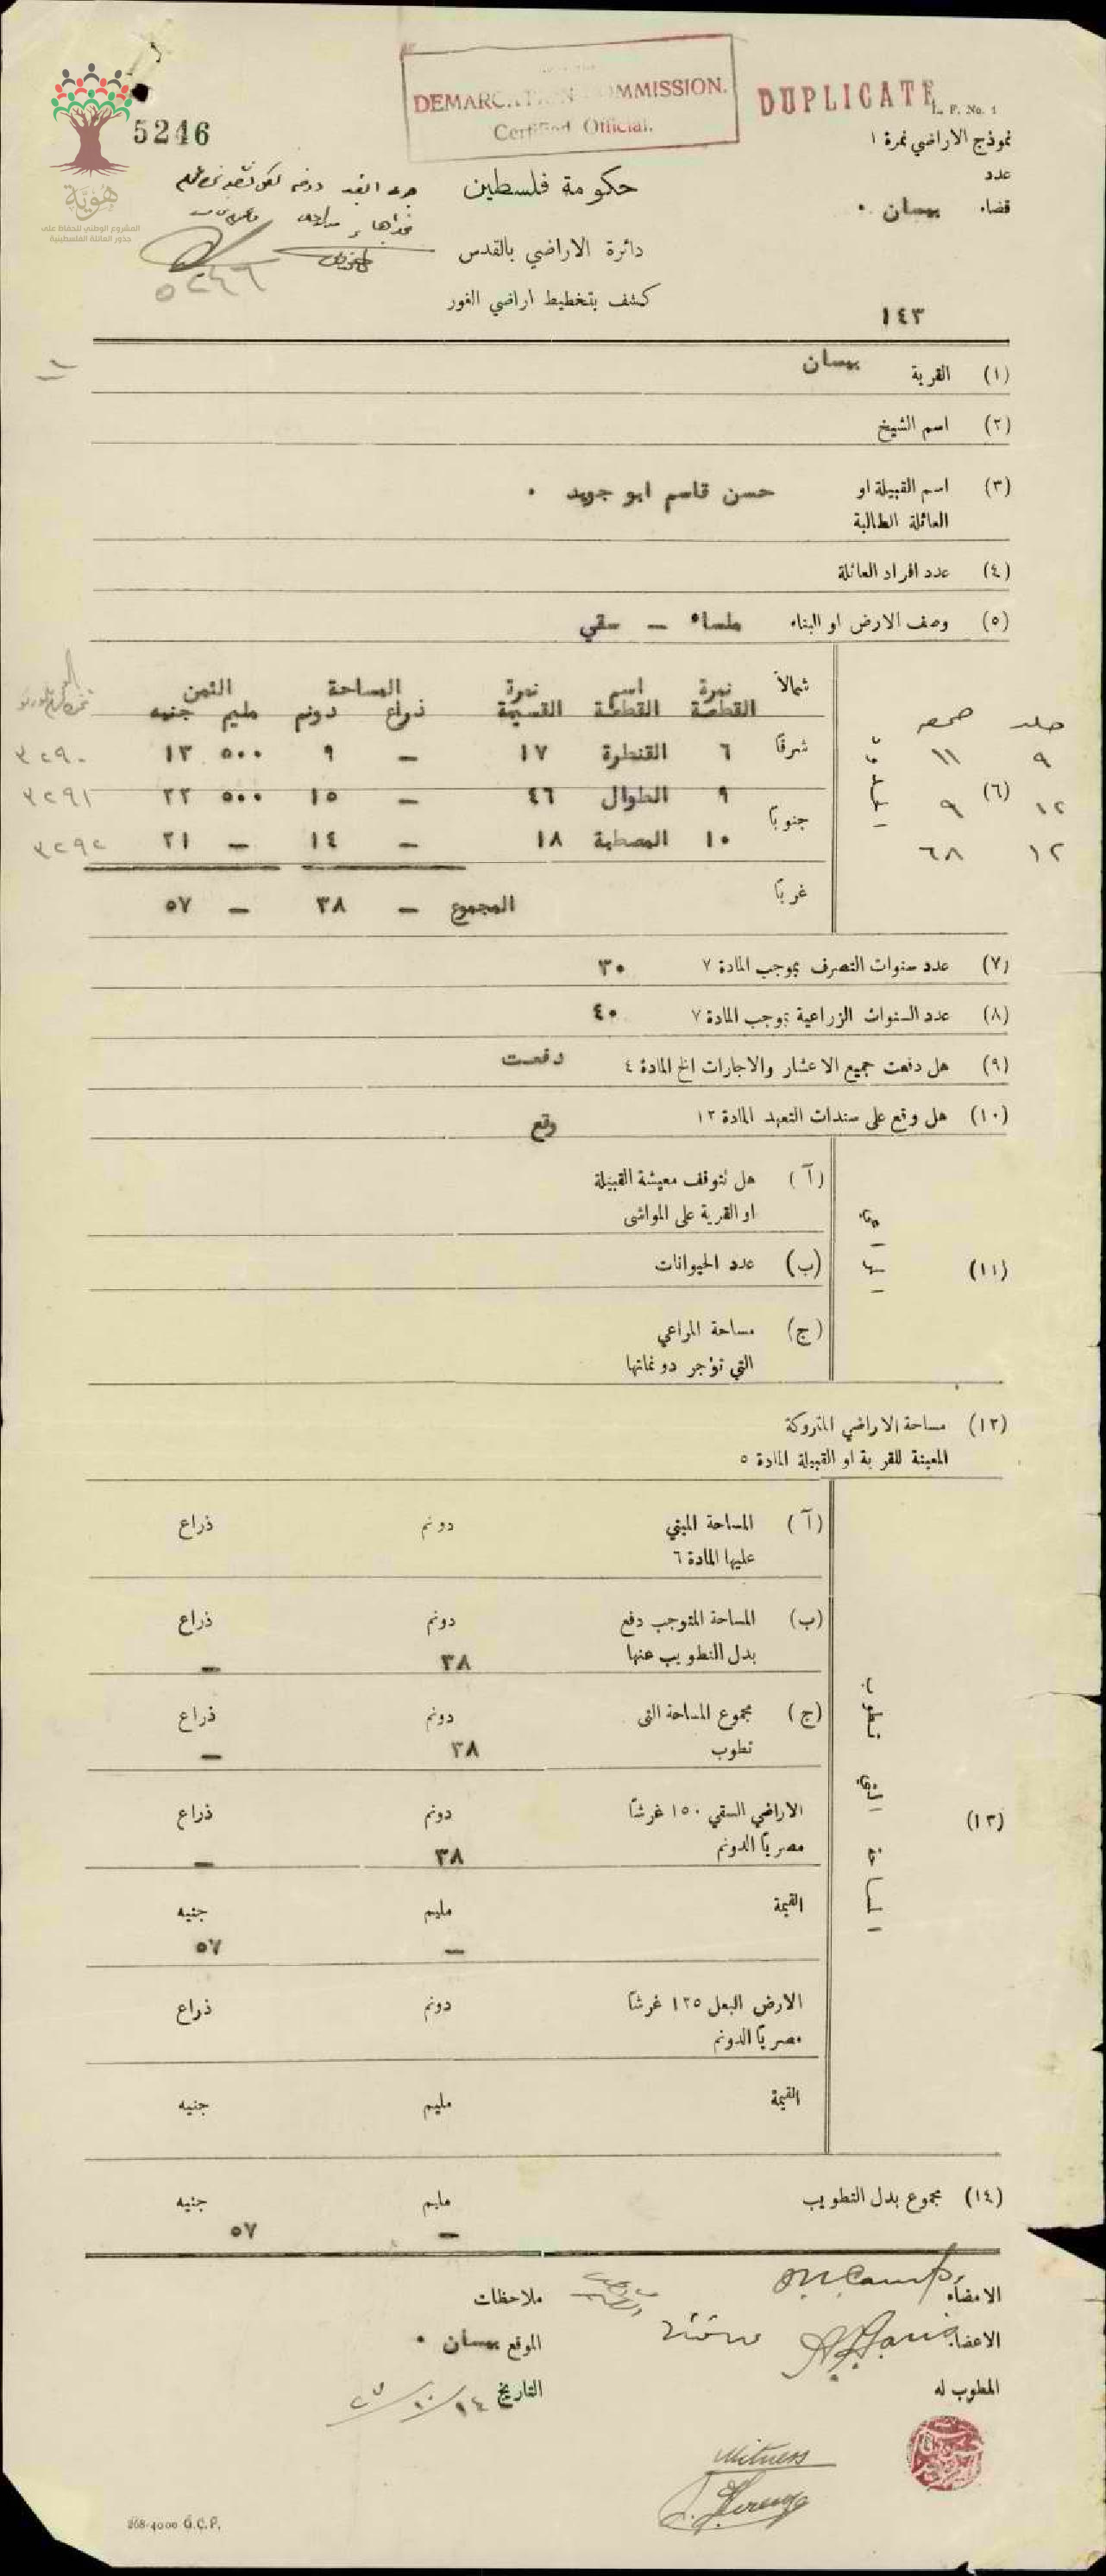 DEMARCATION COMMISSION.
Certified Official.
DUPLICATE
L. F. No. 1
نموذج الاراضي نمرة ١
5246
عدد
قضاء بيسان •
حكومة فلسطين
هوية
المشروع الوطني للحفاظ على
جذور العائلة الفلسطينية
دائرة الاراضي بالقدس
٥٢٤٦
كشف بتخطيط اراضي الغور
١٤٣
(١) القرية بيسان
(٢) اسم الشيخ
(٣) اسم القبيلة او حسن قاسم ابو جويد •
العائلة الطالبة
(٤) عدد افراد العائلة
(٥) وصف الارض او البناء ملساء — سقي
شمالاً نمرة اسم نمرة المساحة الثمن
القطعة القطعة القسيمة ذراع دونم مليم جنيه
جلد صحيفه
٩ ١١ شرقاً ٦ القنطرة ١٧ — ٩ ٥٠٠ ١٣ ٣٢٩٠
(٦) الحدود
١٢ ٩ ٩ الطوال ٤٦ — ١٥ ٥٠٠ ٢٢ ٣٢٩١
جنوباً
١٢ ٦٨ ١٠ المصطبة ١٨ — ١٤ — ٢١ ٣٢٩٢
غرباً المجموع — ٣٨ — ٥٧
(٧) عدد سنوات التصرف بموجب المادة ٧ ٣٠
(٨) عدد السنوات الزراعية بموجب المادة ٧ ٤٠
(٩) هل دفعت جميع الاعشار والاجارات الخ المادة ٤ دفعت
(١٠) هل وقع على سندات التعهد المادة ١٣ وقع
(١١)
(آ) هل تتوقف معيشة القبيلة
او القرية على المواشي
(ب) عدد الحيوانات
(ج) مساحة المراعي
التي تؤجر دونماتها
(١٢) مساحة الاراضي المتروكة
المعينة للقرية او القبيلة المادة ٥
(١٣) المساحة التي تطوب
(آ) المساحة المبني دونم ذراع
عليها المادة ٦
(ب) المساحة المتوجب دفع دونم ذراع
بدل التطويب عنها ٣٨ —
(ج) مجموع المساحة التي دونم ذراع
تطوب ٣٨ —
الاراضي السقي ١٥٠ غرشاً دونم ذراع
مصرياً الدونم ٣٨ —
القيمة مليم جنيه
— ٥٧
الارض البعل ١٢٥ غرشاً دونم ذراع
مصرياً الدونم
القيمة مليم جنيه
(١٤) مجموع بدل التطويب مليم جنيه
— ٥٧
الامضاء ملاحظات
الاعضاء الموقع بيسان •
المطوب له التاريخ ١٤/١٠/٢٥
Witness
268-4000 G.C.P.